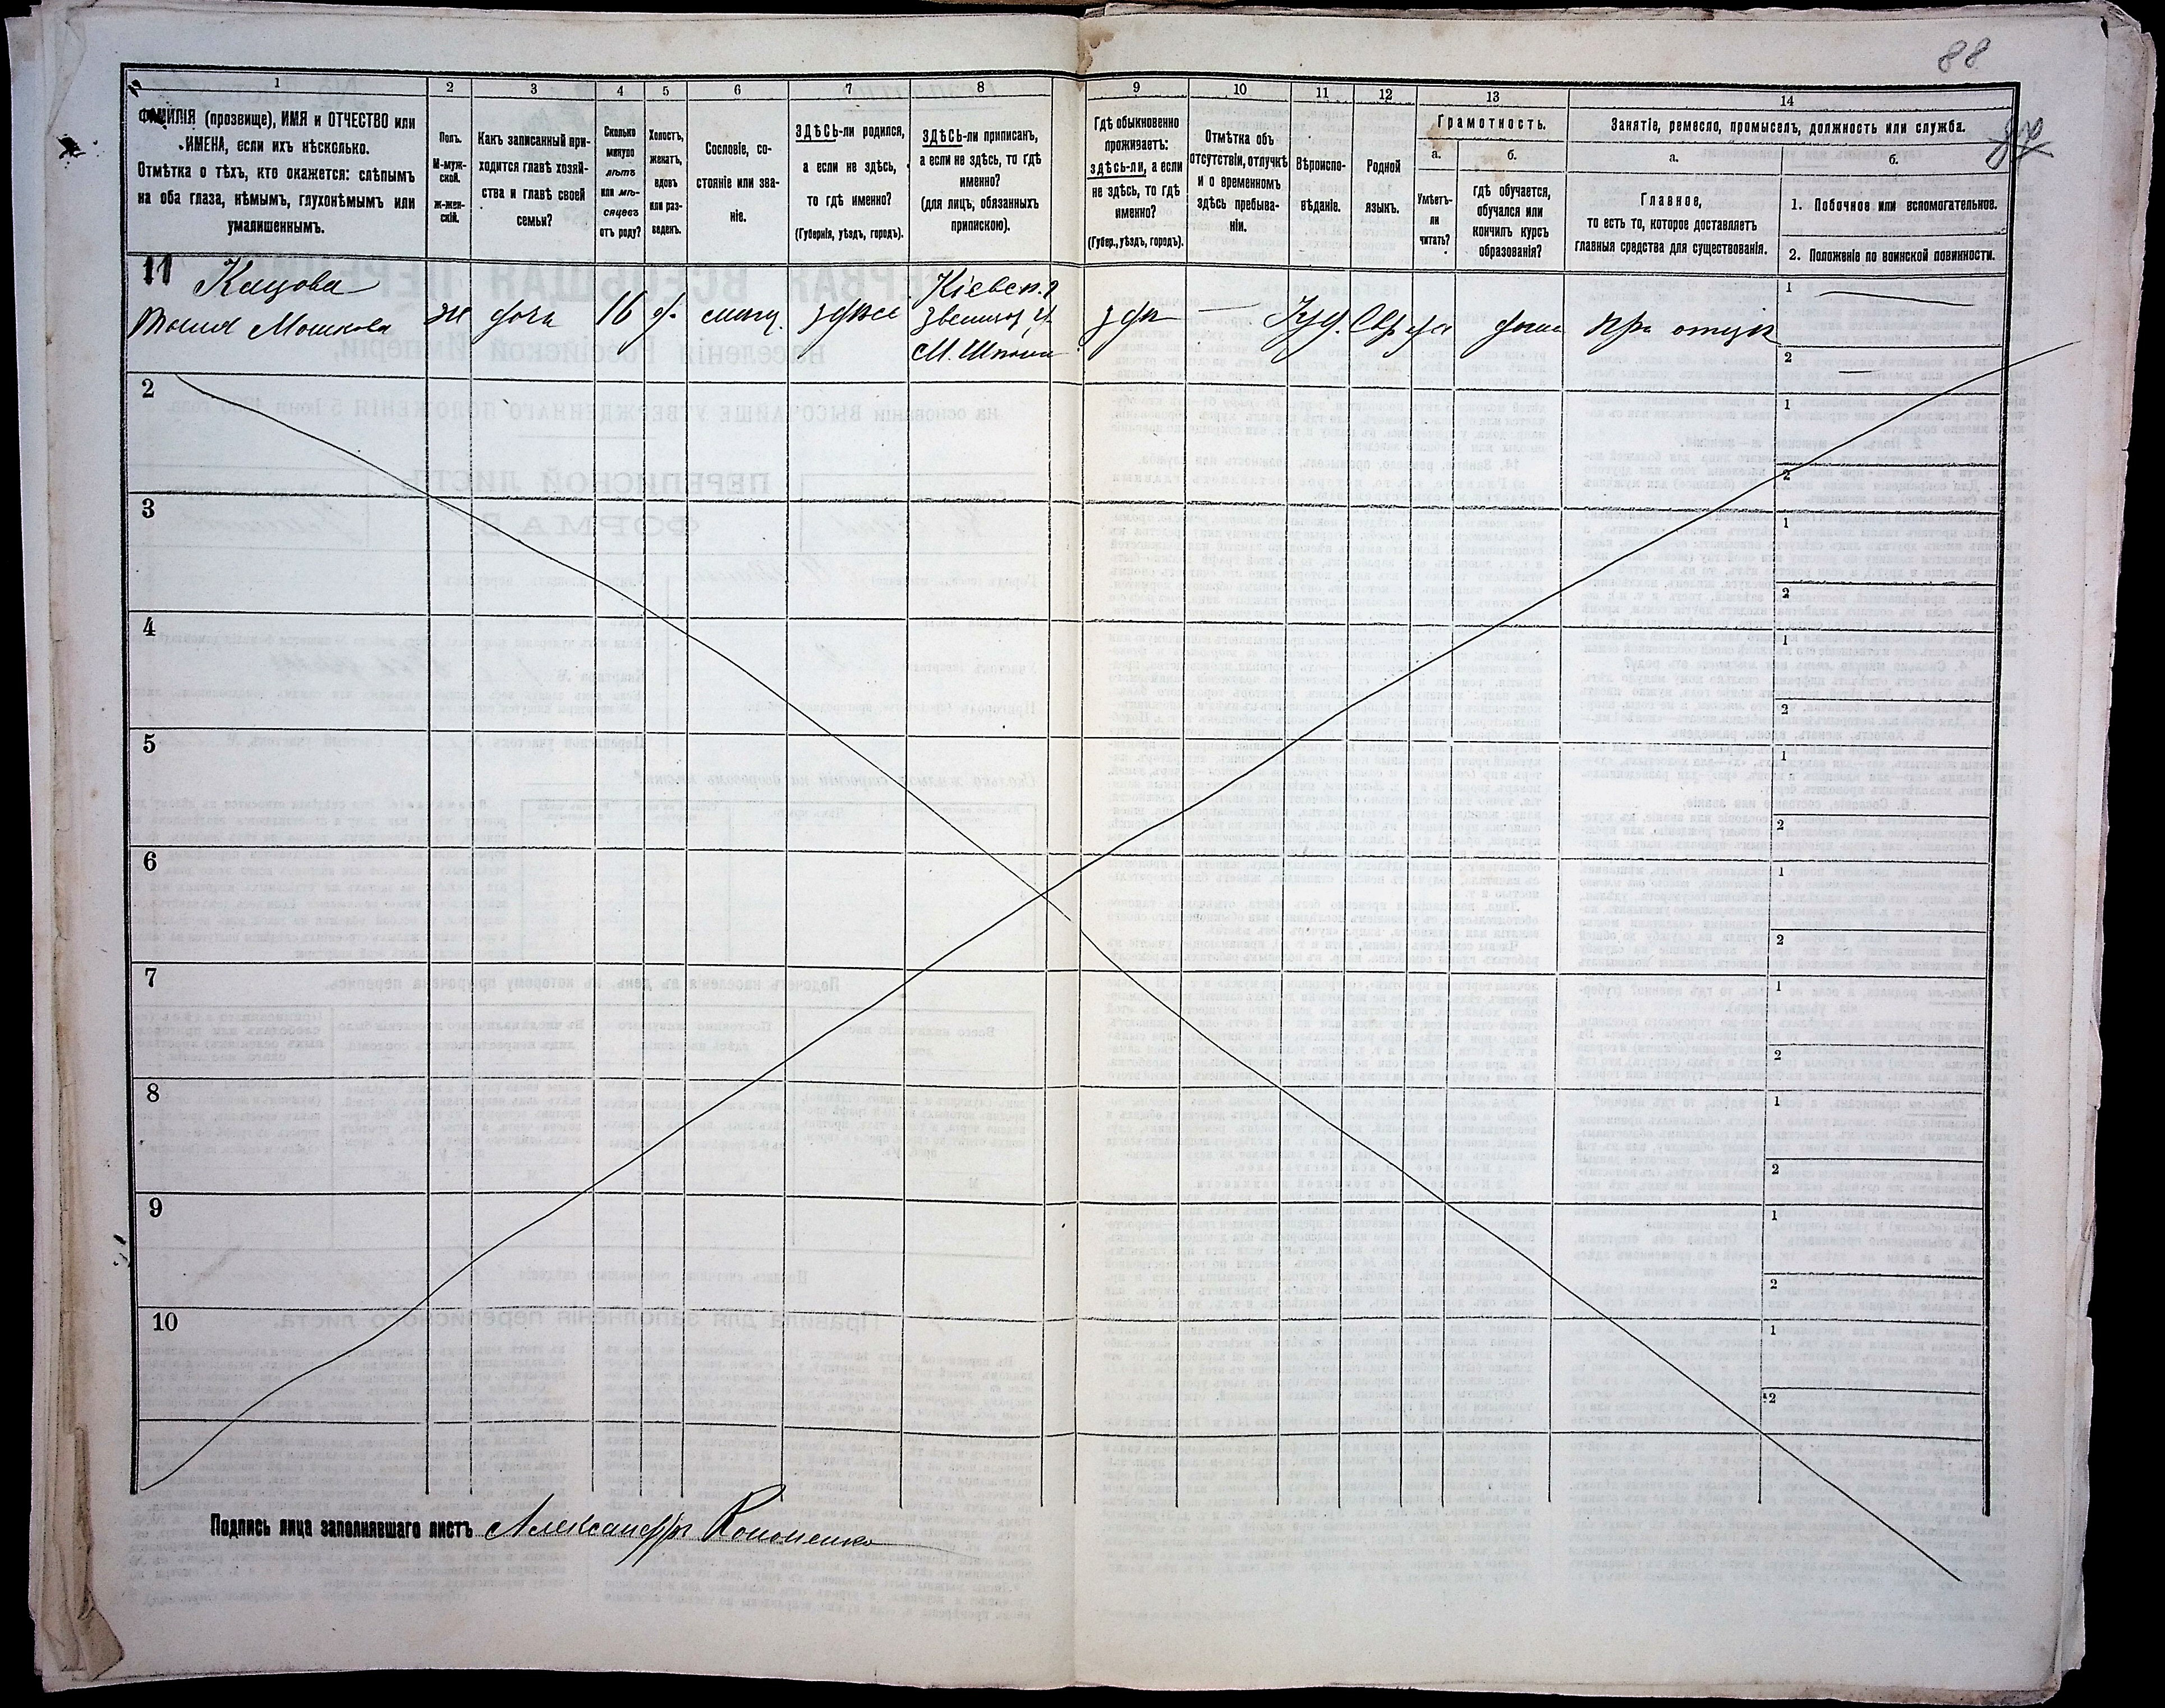 88
1
2
3
4
5
6
7
8
9
10
11
12
13
14
ФАМИЛІЯ (прозвище), ИМЯ и ОТЧЕСТВО или
ИМЕНА, если ихъ нѣсколько.
Отмѣтка о тѣхъ, кто окажется: слѣпымъ
на оба глаза, нѣмымъ, глухонѣмымъ или
умалишеннымъ.
Полъ.
М-муж-
ской.
ж-жен-
скій.
Какъ записанный при-
ходится главѣ хозяй-
ства и главѣ своей
семьи?
Сколько
минуло
лѣтъ
или мѣ-
сяцевъ
отъ роду?
Холостъ,
женатъ,
вдовъ
или раз-
веденъ.
Сословіе, со-
стояніе или зва-
ніе.
ЗДѢСЬ-ли родился,
а если не здѣсь,
то гдѣ именно?
(Губернія, уѣздъ, городъ).
ЗДѢСЬ-ли приписан,
а если не здѣсь, то гдѣ
именно?
(для лицъ, обязанныхъ
припискою).
Гдѣ обыкновенно
проживаетъ:
здѣсь-ли, а если
не здѣсь, то гдѣ
именно?
(Губер., уѣздъ, городъ).
Отмѣтка объ
отсутствіи, отлучкѣ
и о временномъ
здѣсь пребыва-
ніи.
Вѣроиспо-
вѣданіе.
Родной
языкъ.
Грамотность.
а.
Умѣетъ-
ли
читать?
б.
гдѣ обучается,
обучался или
кончилъ курсъ
образованія?
Занятіе, ремесло, промыселъ, должность или служба.
а.
Главное,
то есть то, которое доставляетъ
главныя средства для существованія.
б.
1. Побочное или вспомогательное.
2. Положеніе по воинской повинности.
11
Кацова
Мошкова
ж
дочь
16
д.
мѣщ.
здѣсь
Кіевск. г
Звениг. у.
М. Шпола
здѣ
—
Іуд.
Евр
да
дома
при отцѣ
1
2
2
1
2
3
1
2
4
1
2
5
1
2
6
1
2
7
1
2
8
1
2
9
1
2
10
1
2
Подпись лица заполнявшаго листъ Александръ Кононенко